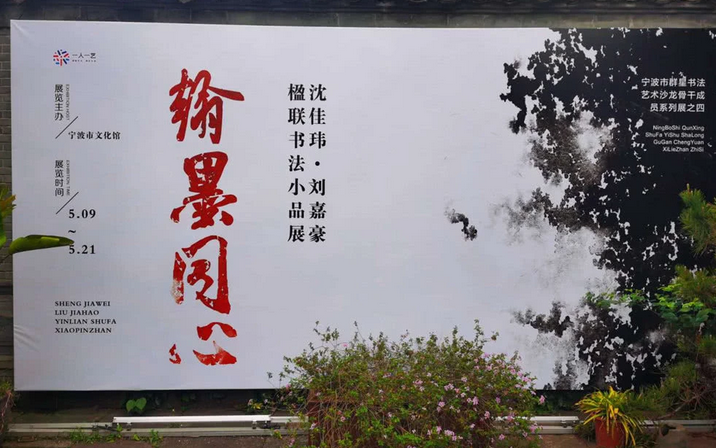 一人一艺
展览主办
EXHIBITION HOST
宁波市文化馆
展览时间
EXHIBITION TIME
5.09
~
5.21
SHENG JIAWEI
LIU JIAHAO
YINLIAN SHUFA
XIAOPINZHAN
翰墨同心
沈佳玮·刘嘉豪
楹联书法小品展
宁波市群星书法
艺术沙龙骨干成
员系列展之四
NingBoShi QunXing
ShuFa YiShu ShaLong
GuGan ChengYuan
XiLieZhan ZhiSi